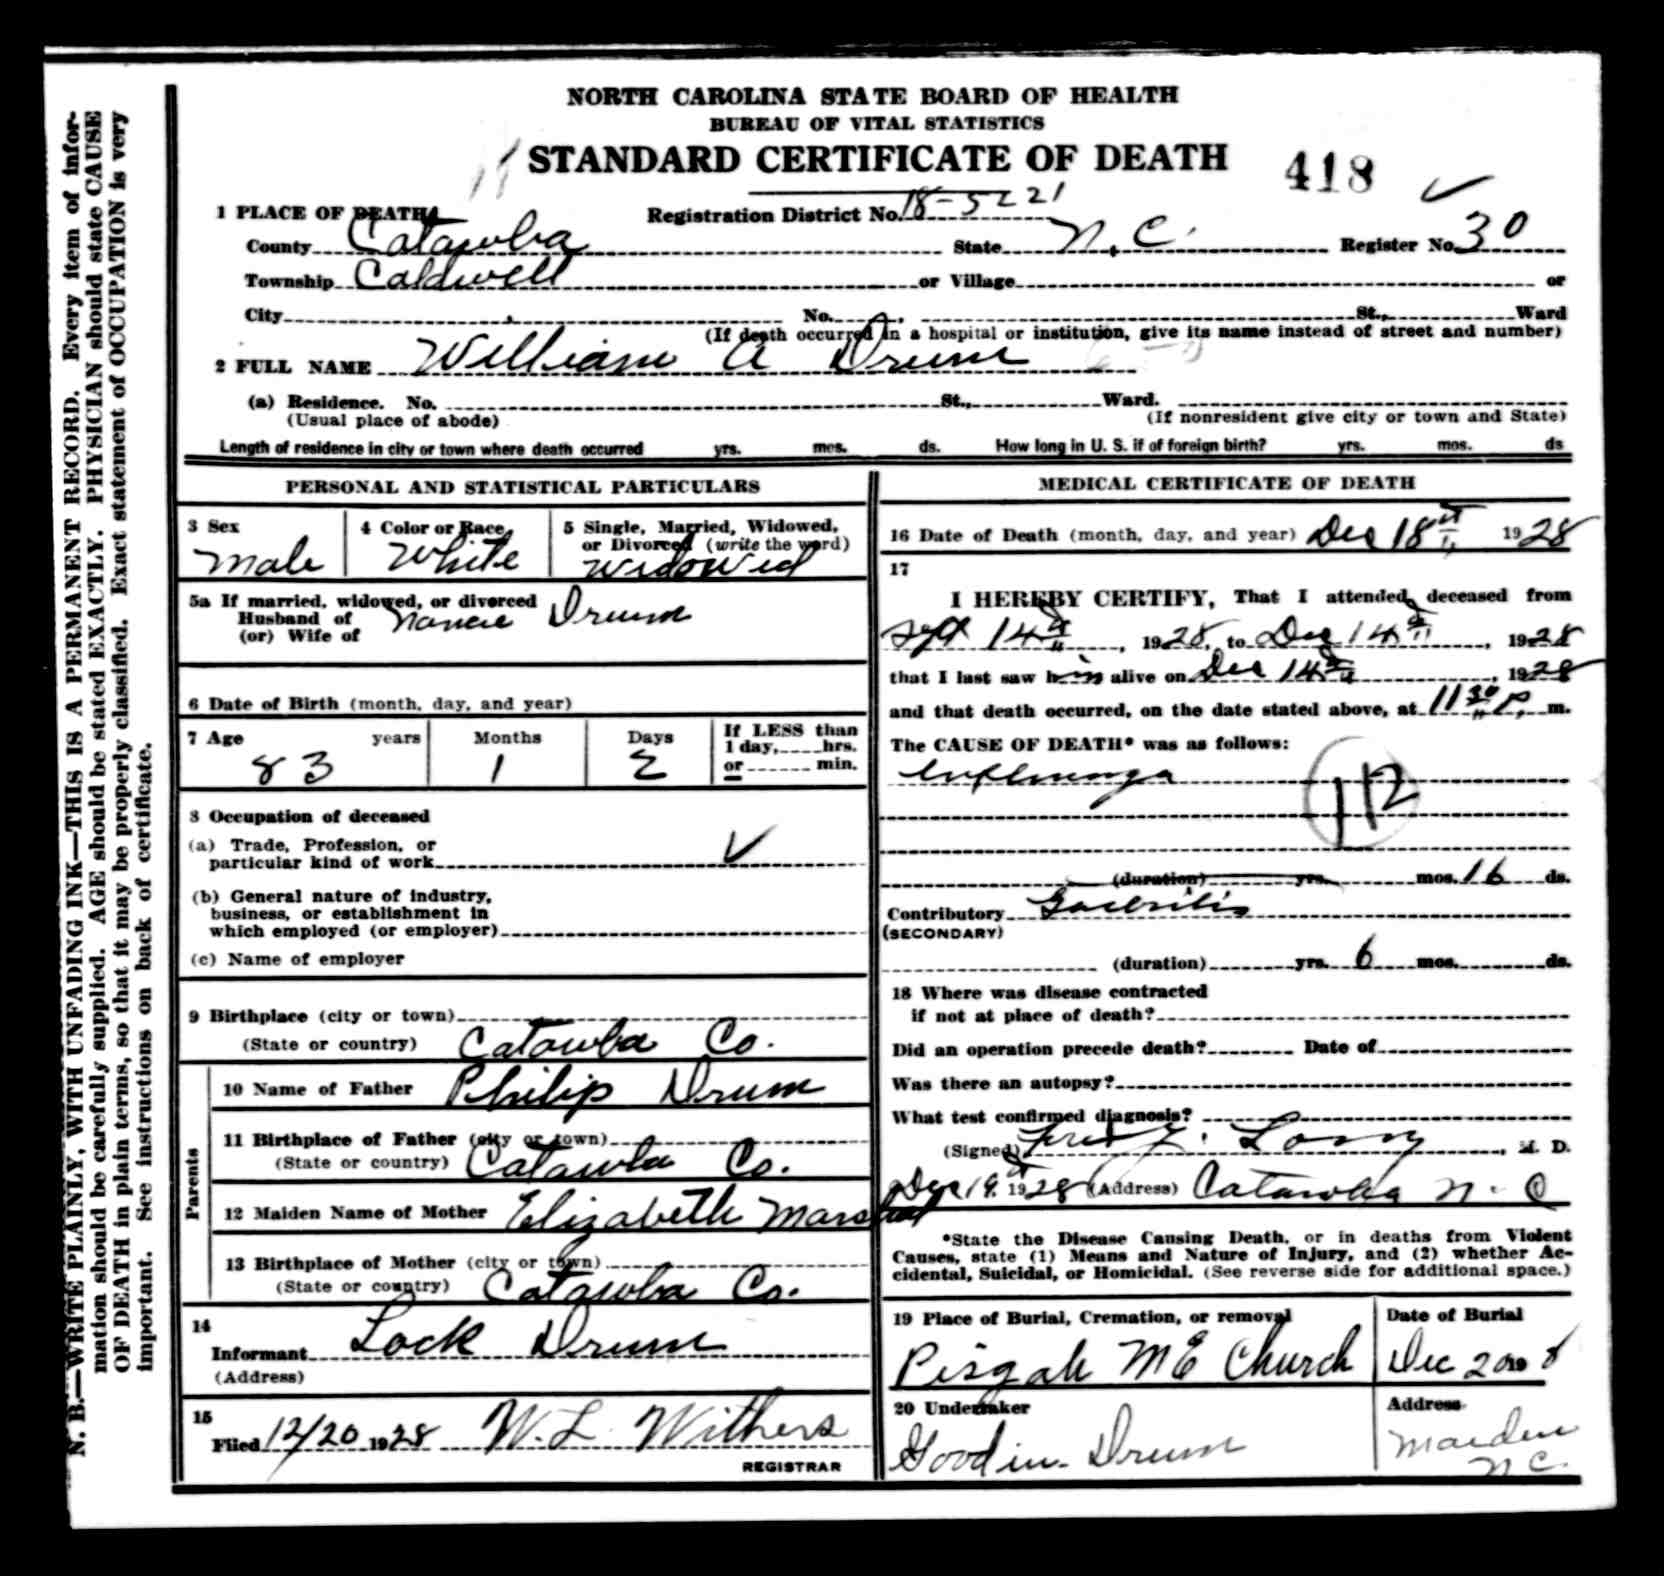 NORTH CAROLINA STATE BOARD OF HEALTH
BUREAU OF VITAL STATISTICS
STANDARD CERTIFICATE OF DEATH 418
1 PLACE OF DEATH Registration District No. 18-5221
County Catawba State N.C. Register No. 30
Township Caldwell or Village or
City No. St., Ward
(If death occurred in a hospital or institution, give its name instead of street and number)
2 FULL NAME William A Drum
(a) Residence. No. St., Ward.
(Usual place of abode) (If nonresident give city or town and State)
Length of residence in city or town where death occurred yrs. mos. ds. How long in U. S. if of foreign birth? yrs. mos. ds
PERSONAL AND STATISTICAL PARTICULARS
3 Sex
Male
4 Color or Race
White
5 Single, Married, Widowed,
or Divorced (write the word)
Widowed
5a If married, widowed, or divorced
Husband of
(or) Wife of
Nancie Drum
6 Date of Birth (month, day, and year)
7 Age years Months Days If LESS than
1 day, hrs.
or min.
83 1 2
8 Occupation of deceased
(a) Trade, Profession, or
particular kind of work
(b) General nature of industry,
business, or establishment in
which employed (or employer)
(c) Name of employer
9 Birthplace (city or town)
(State or country) Catawba Co.
Parents
10 Name of Father Philip Drum
11 Birthplace of Father (city or town)
(State or country) Catawba Co.
12 Maiden Name of Mother Elizabeth
13 Birthplace of Mother (city or town)
(State or country) Catawba Co.
14
Informant Lock Drum
(Address)
15
Filed 12/20 1928 W. L. Withers
REGISTRAR
MEDICAL CERTIFICATE OF DEATH
16 Date of Death (month, day, and year) Dec 18 1928
17
I HEREBY CERTIFY, That I attended deceased from
Sept 14, 1928, to Dec 14, 1928
that I last saw him alive on Dec 14, 1928
and that death occurred, on the date stated above, at 11 30 P. m.
The CAUSE OF DEATH* was as follows:
Influenza
112
(duration) yrs. mos. 16 ds.
Contributory
(SECONDARY)
(duration) yrs. 6 mos. ds.
18 Where was disease contracted
if not at place of death?
Did an operation precede death? Date of
Was there an autopsy?
What test confirmed diagnosis?
(Signed) Fred Y. Long, M. D.
Dec 19, 1928 (Address) Catawba N. C
*State the Disease Causing Death, or in deaths from Violent
Causes, state (1) Means and Nature of Injury, and (2) whether Ac-
cidental, Suicidal, or Homicidal. (See reverse side for additional space.)
19 Place of Burial, Cremation, or removal
Pisgah M E Church
Date of Burial
Dec 20 19 8
20 Undertaker
Goodin Drum
Address
Maiden
N C.
N. B.—WRITE PLAINLY, WITH UNFADING INK—THIS IS A PERMANENT RECORD. Every item of infor-
mation should be carefully supplied. AGE should be stated EXACTLY. PHYSICIAN should state CAUSE
OF DEATH in plain terms, so that it may be properly classified. Exact statement of OCCUPATION is very
important. See instructions on back of certificate.